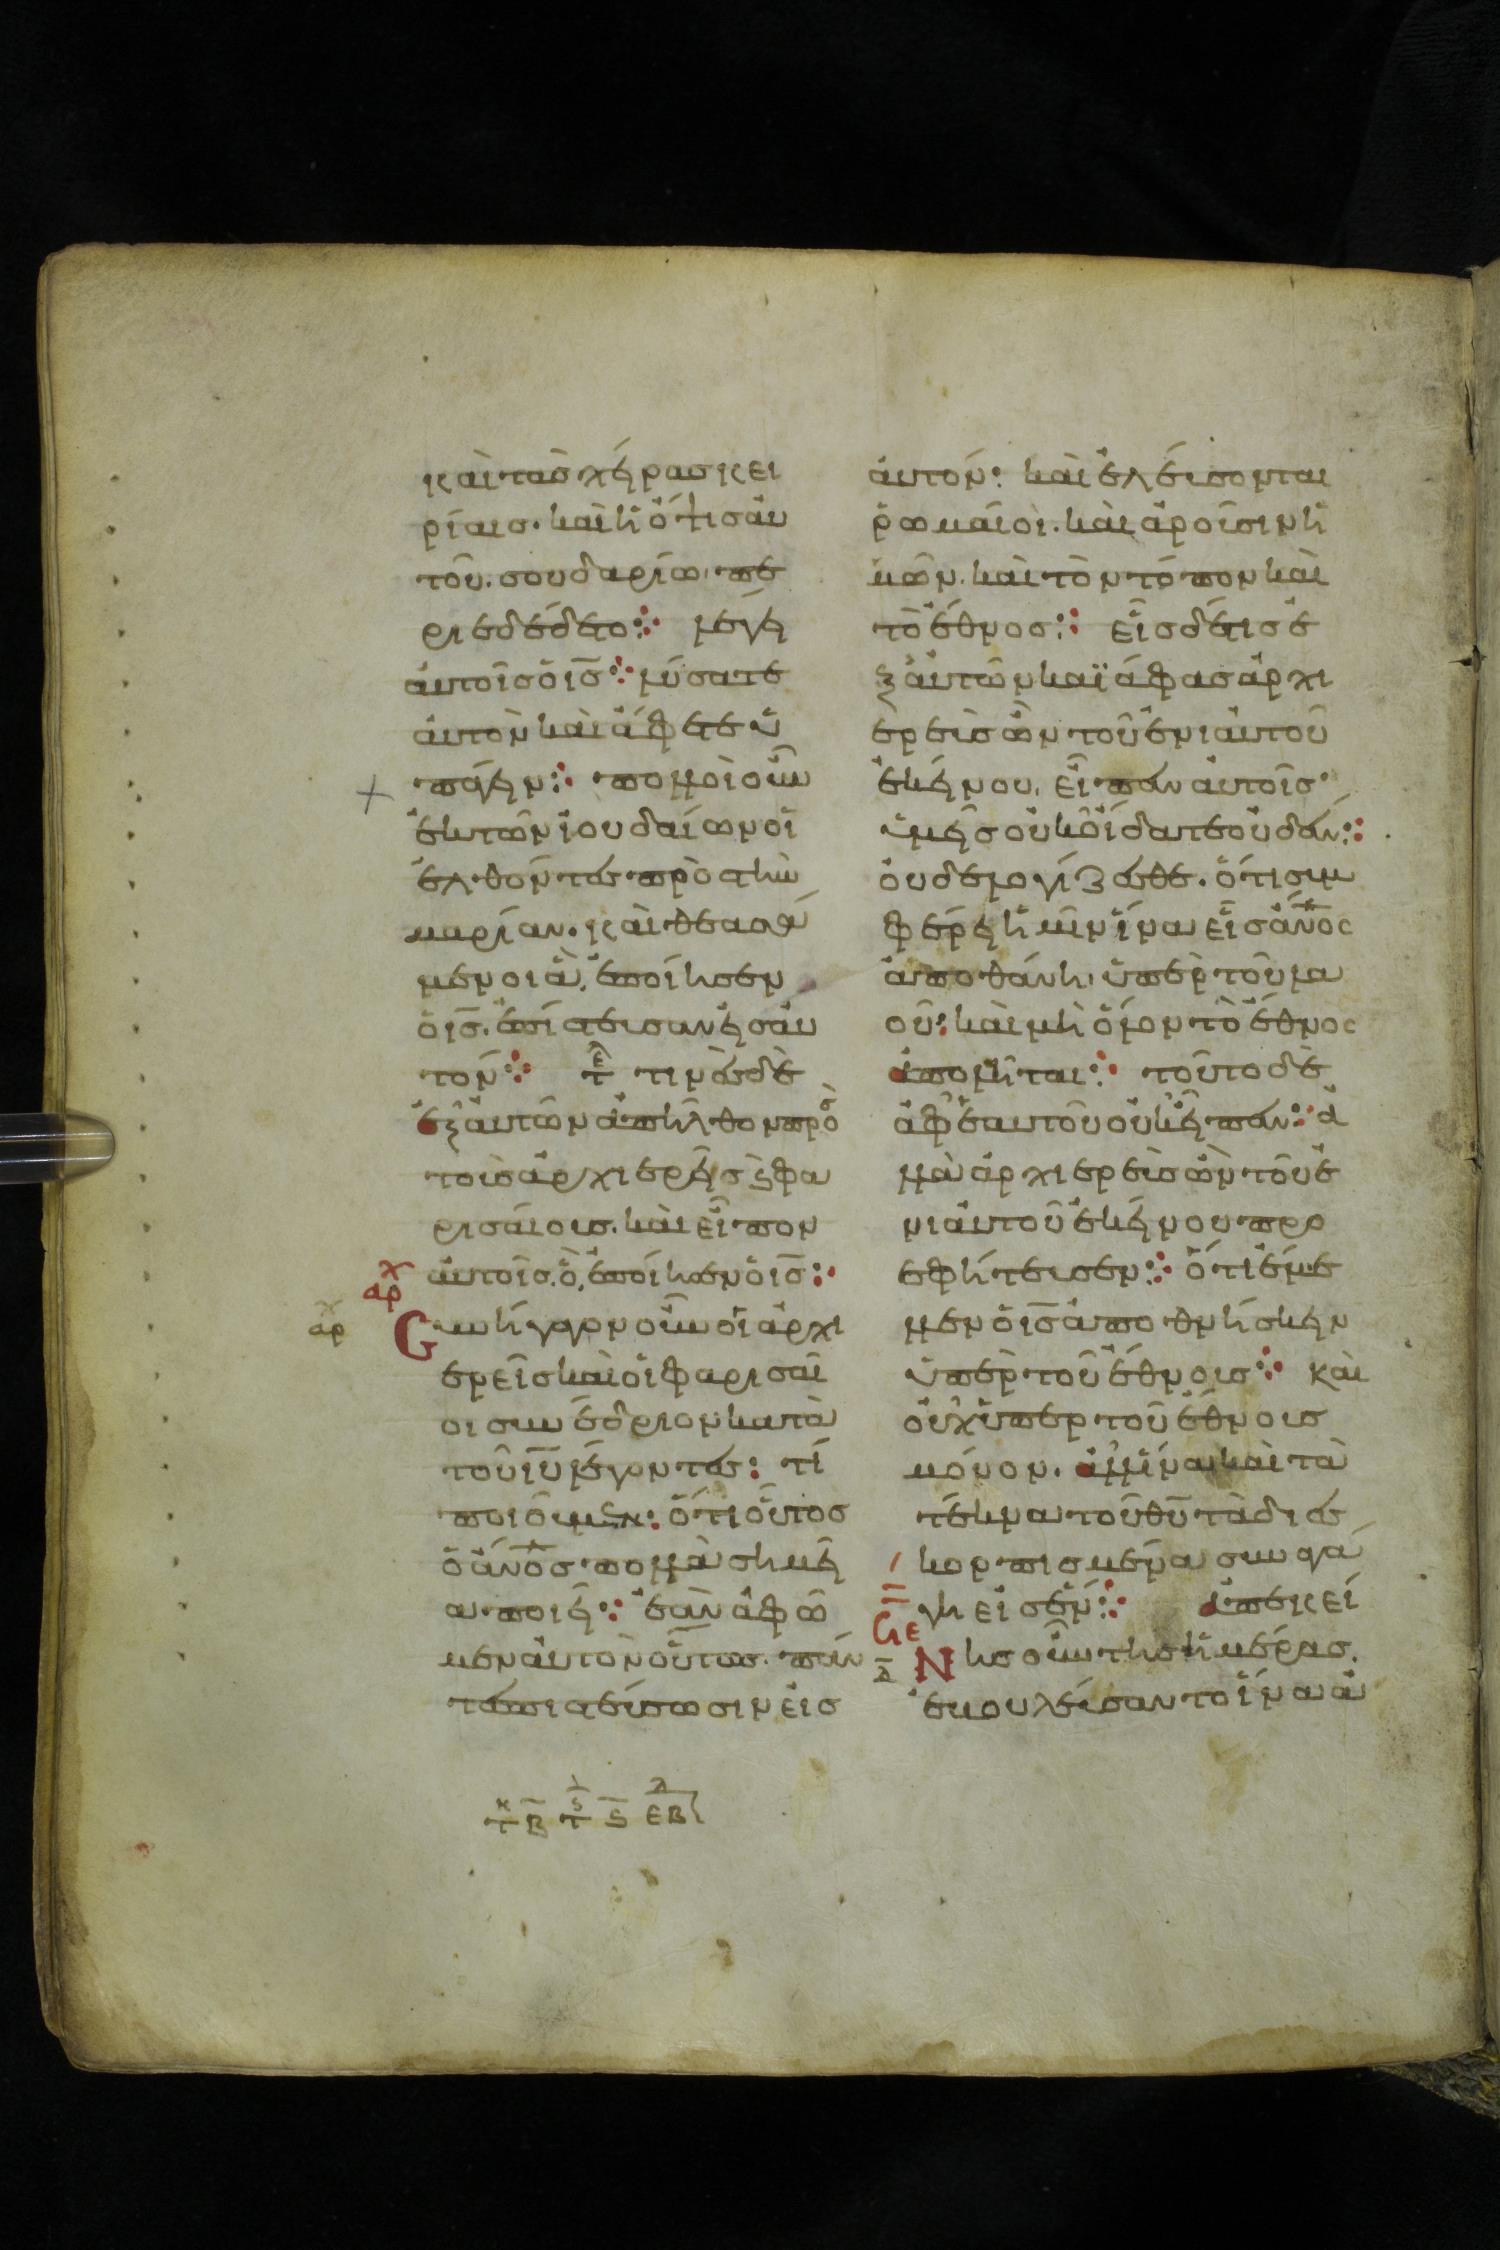 καὶ τὰσ χεῖρασ κει
ρίαισ. καὶ ἡ ὄψισ ἀυ
τοῦ. σουδαρίω πε
ριεδέδετο: λέγει
ἀυτοῖσ ὁ ις̅: λύσατε
ἀυτὸν καὶ ἄφετε ὑ
πάγειν: πολλοὶ οὖν
ἐκ τῶν ἰουδαίων οἱ
ἐλθόντεσ πρὸσ τὴν
μαρίαν. καὶ θεασά
μενοι ἃ, ἐποίησεν
ὁ ις̅. ἐπίστευσαν εἰσ ἀυ
τόν: τε τινὲσ δὲ
ἐξ ἀυτῶν ἀπῆλθον πρὸσ
τοὺσ ἀρχιερεῖσ ϗ φα
ρισάιουσ. καὶ εἶπον
ἀυτοῖσ. ὃ, ἐποίησεν ὁ ις̅:
αρχ
αρχ
Συνήγαγον οὖν οἱ ἀρχι
ερεῖσ καὶ οἱ φαρισαῖ
οι συνέδριον κατὰ
τοῦ ιυ̅ λέγοντεσ: τί
ποιοῦμεν: ὅτι οὗτοσ
ὁ ἄνος̅ πολλὰ σημεῖ
α ποιεῖ: ἐὰν ἀφῶ
μεν ἀυτὸν οὕτωσ. πάν
τεσ πιστεύσωσιν εἰσ
ἀυτόν: καὶ ἐλέυσονται
ῥωμαῖοι. καὶ ἀροῦσιν ἡ
μῶν. καὶ τὸν τόπον καὶ
τὸ ἔθνοσ: εἷσ δέ τισ ἐ
ξ ἀυτῶν καϊάφασ ἀρχι
ερεὺσ ὢν τοῦ ἐνιαυτοῦ
ἐκείνου, εἶπεν ἀυτοῖσ
ὑμεῖσ οὐκ οἴδατε οὐδέν:
ὀυδὲ λογίζεσθε. ὅτι συμ
φέρει ἡμῖν ἵνα εἷσ ἄνος̅
ἀποθάνη, ὑπὲρ τοῦ λα
οῦ: καὶ μὴ ὅλον τὸ ἔθνοσ
ἀπόληται: τοῦτο δὲ
ἀφ' ἑαυτοῦ οὐκ εἶπεν: ἀ
λλὰ ἀρχιερεὺσ ὢν τοῦ ἐ
νιαυτοῦ ἐκείνου προ
εφήτευσεν: ὅτι ἔμε
λλεν ὁ ις̅ ἀποθνήσκειν
ὑπὲρ τοῦ ἔθνουσ: καὶ
οὐχ ὑπὲρ τοῦ ἔθνουσ
μόνον. ἀλλ' ἵνα καὶ τὰ
τέκνα τοῦ θυ̅ τὰ διεσ
κορπισμένα συναγά
γη εἰσ ἕν: ἀπ' ἐκεί
Νησ οὖν τῆσ ἡμέρασ.
ἐβουλεύσαντο ἵνα ἀ